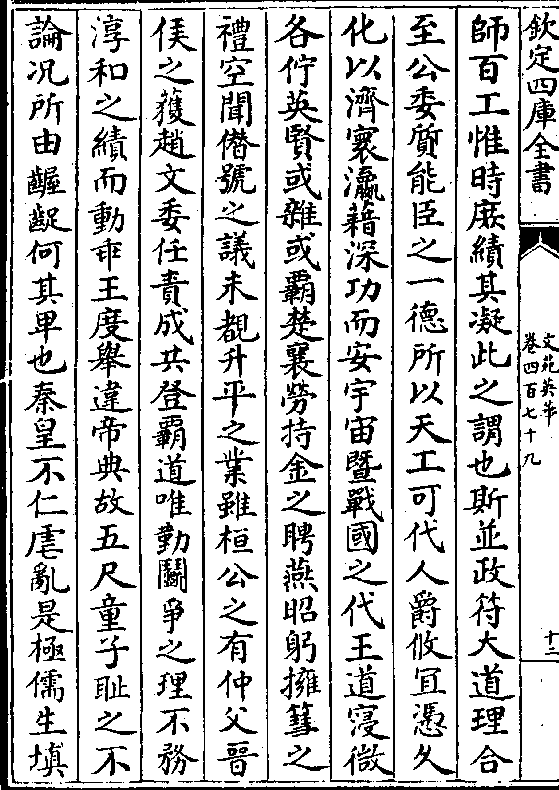 欽定四庫全書
文苑英華
卷四百七十九
十三
師百工惟時庶績其凝此之謂也斯並政符大道理合
至公委質能臣之一德所以天工可代人爵攸宜憑久
化以濟寰瀛藉深功而安宇宙暨戰國之代王道寖微
各佇英賢或雜或霸楚襄勞持金之聘燕昭躬擁篲之
禮空聞僭號之議未覩升平之業雖桓公之有仲父晉
侯之獲趙文委任責成共登霸道唯勤鬭爭之理不務
淳和之績而動乖王度舉違帝典故五尺童子恥之不
論况所由齷齪何其卑也秦皇不仁虐亂是極儒生填